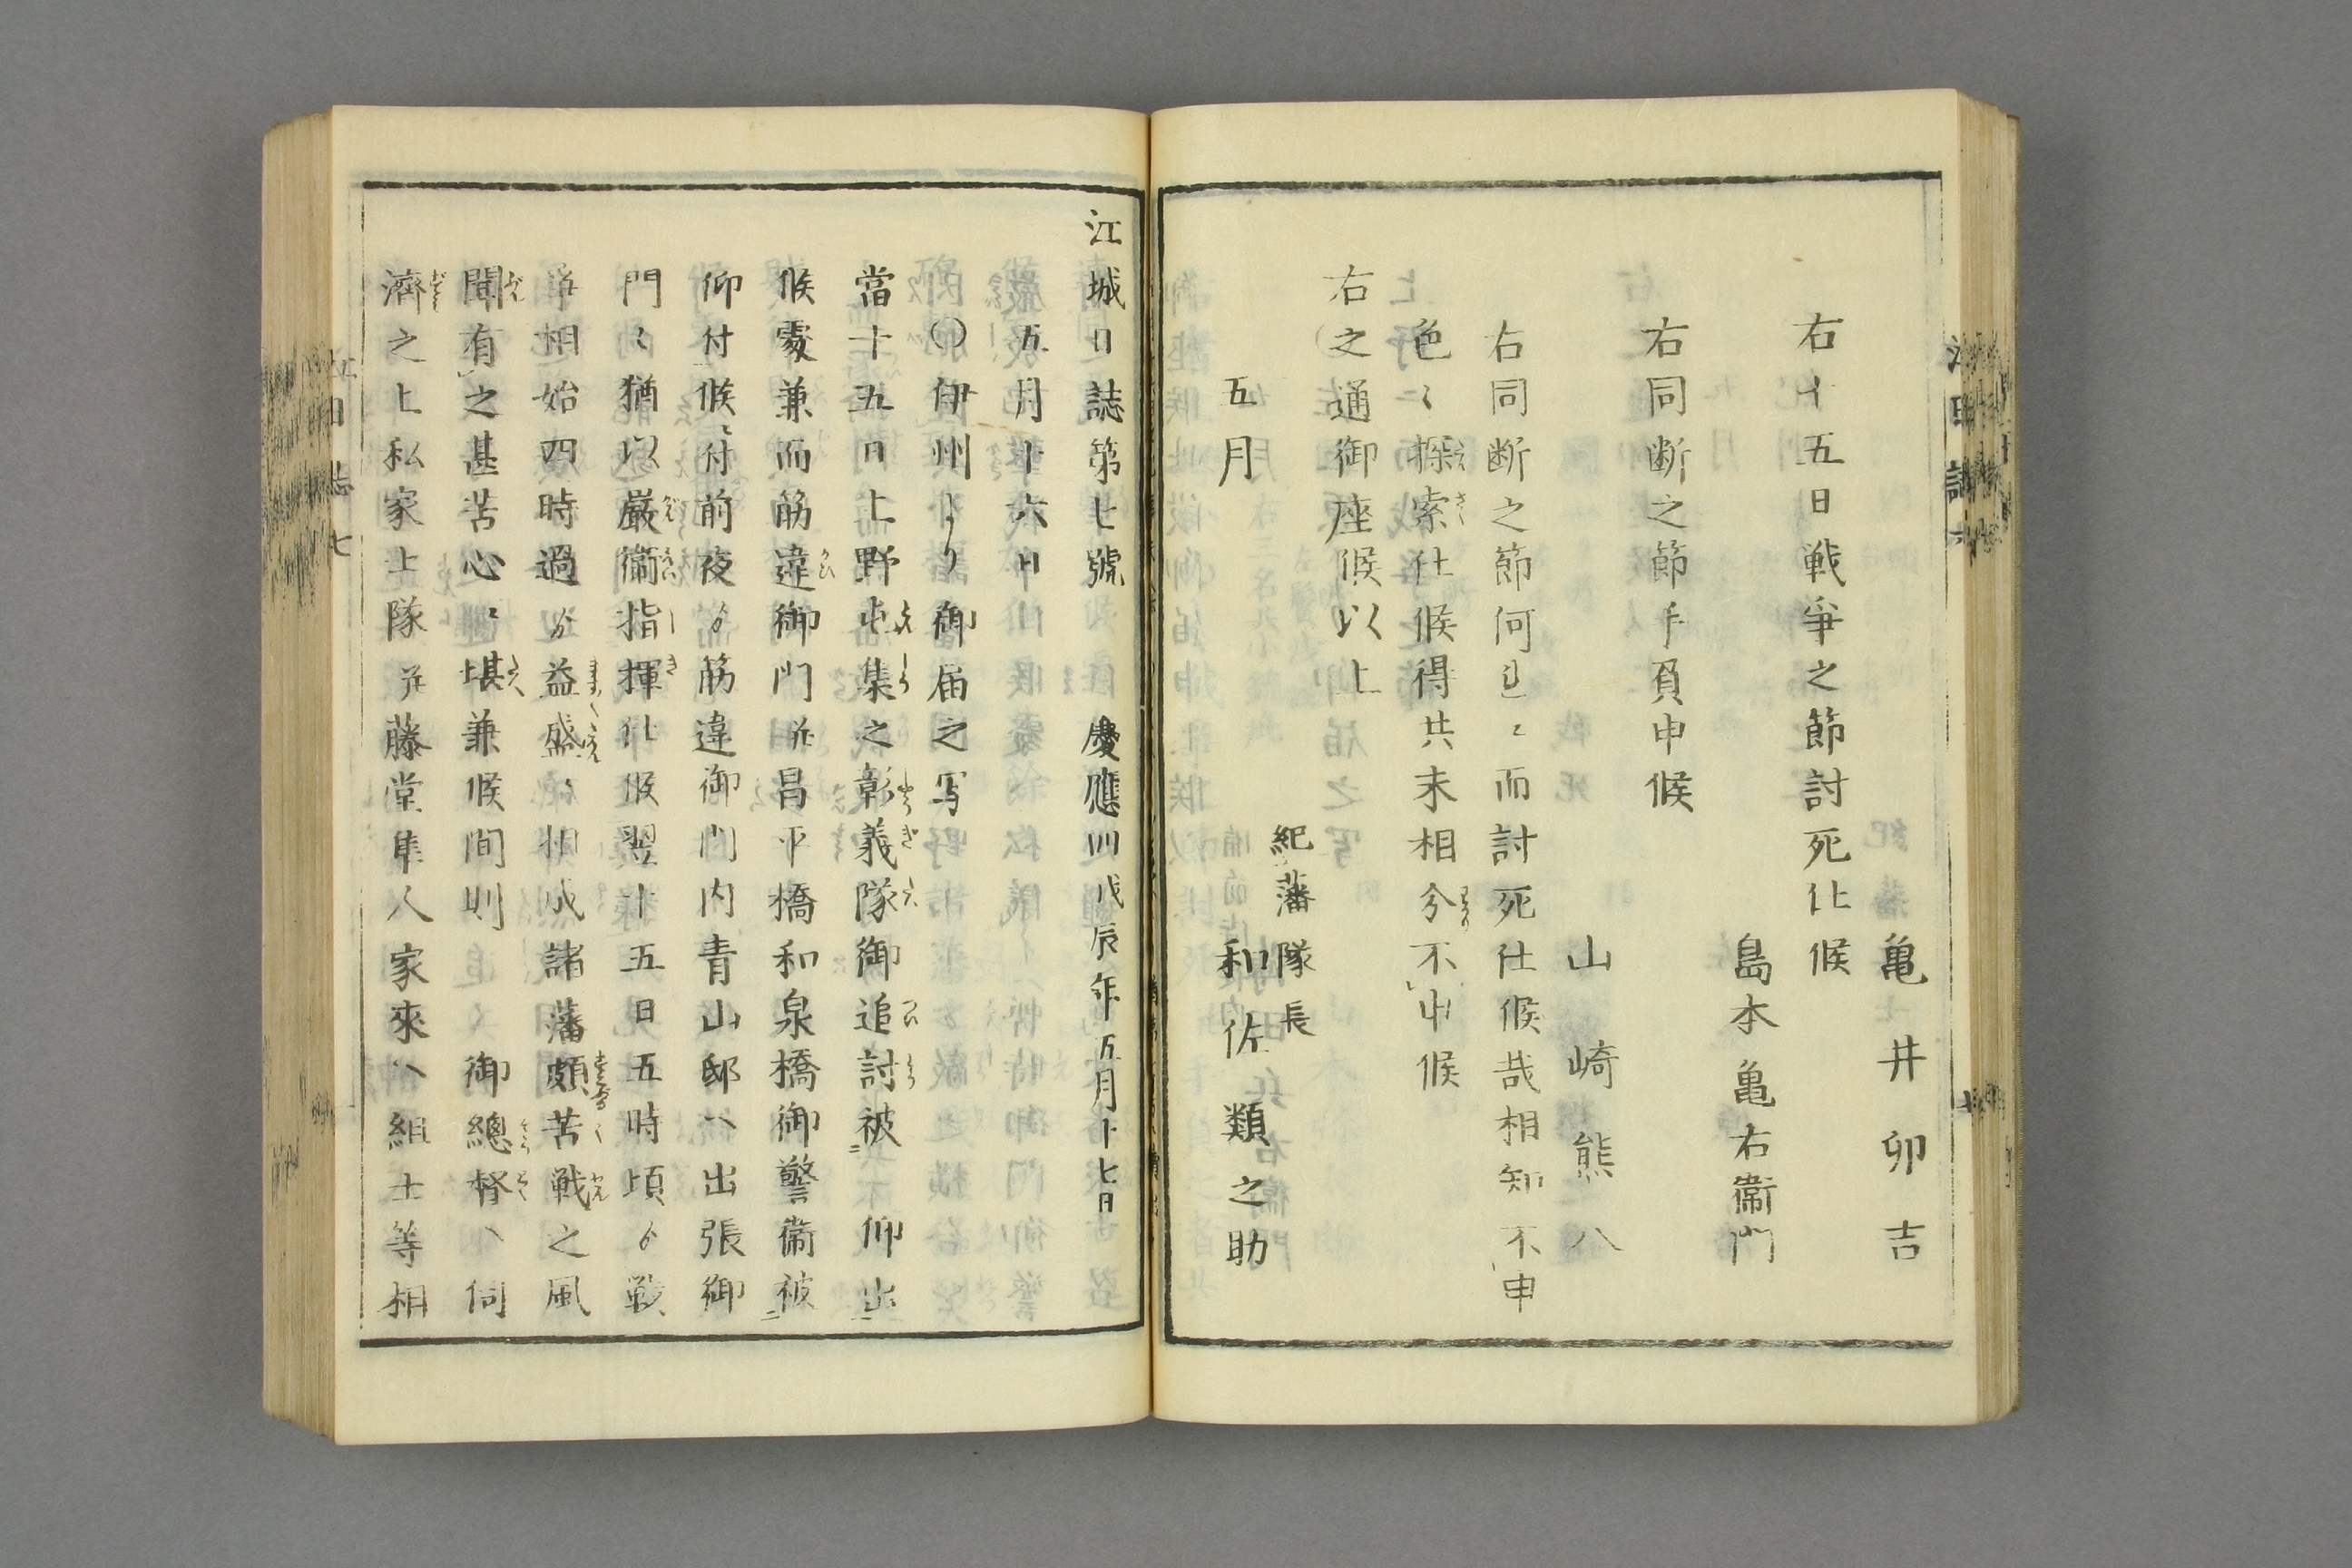 亀井卯吉
右十五日戦争之節討死仕候
島本亀右衞門
右同断之節手負申候
山崎熊八
右同断之節何れニ而討死仕候哉相知不申
色〻探索仕候得共未相分不申候
右之通御座候以上
五月
紀藩隊長
和佐類之助
江城日誌第七號　慶應四戊辰年五月十七日
五月十六日
〇伊州ゟり御届之写
當十五日上野屯集之彰義隊御追討被　仰出
候處兼而筋違御門并昌平橋和泉橋御警衞被
仰付候ニ付前夜ゟ筋違御門内青山邸ヘ出張御
門〻猶以厳衞指揮仕候翌十五日五時頃ゟ戦
争相始四時過ゟ益盛ニ相成諸藩頗苦戦之風
聞有之甚苦心ニ堪兼候間則　御總督ヘ伺
濟之上私家士隊并藤堂隼人家來ヘ組士等相
江日誌七